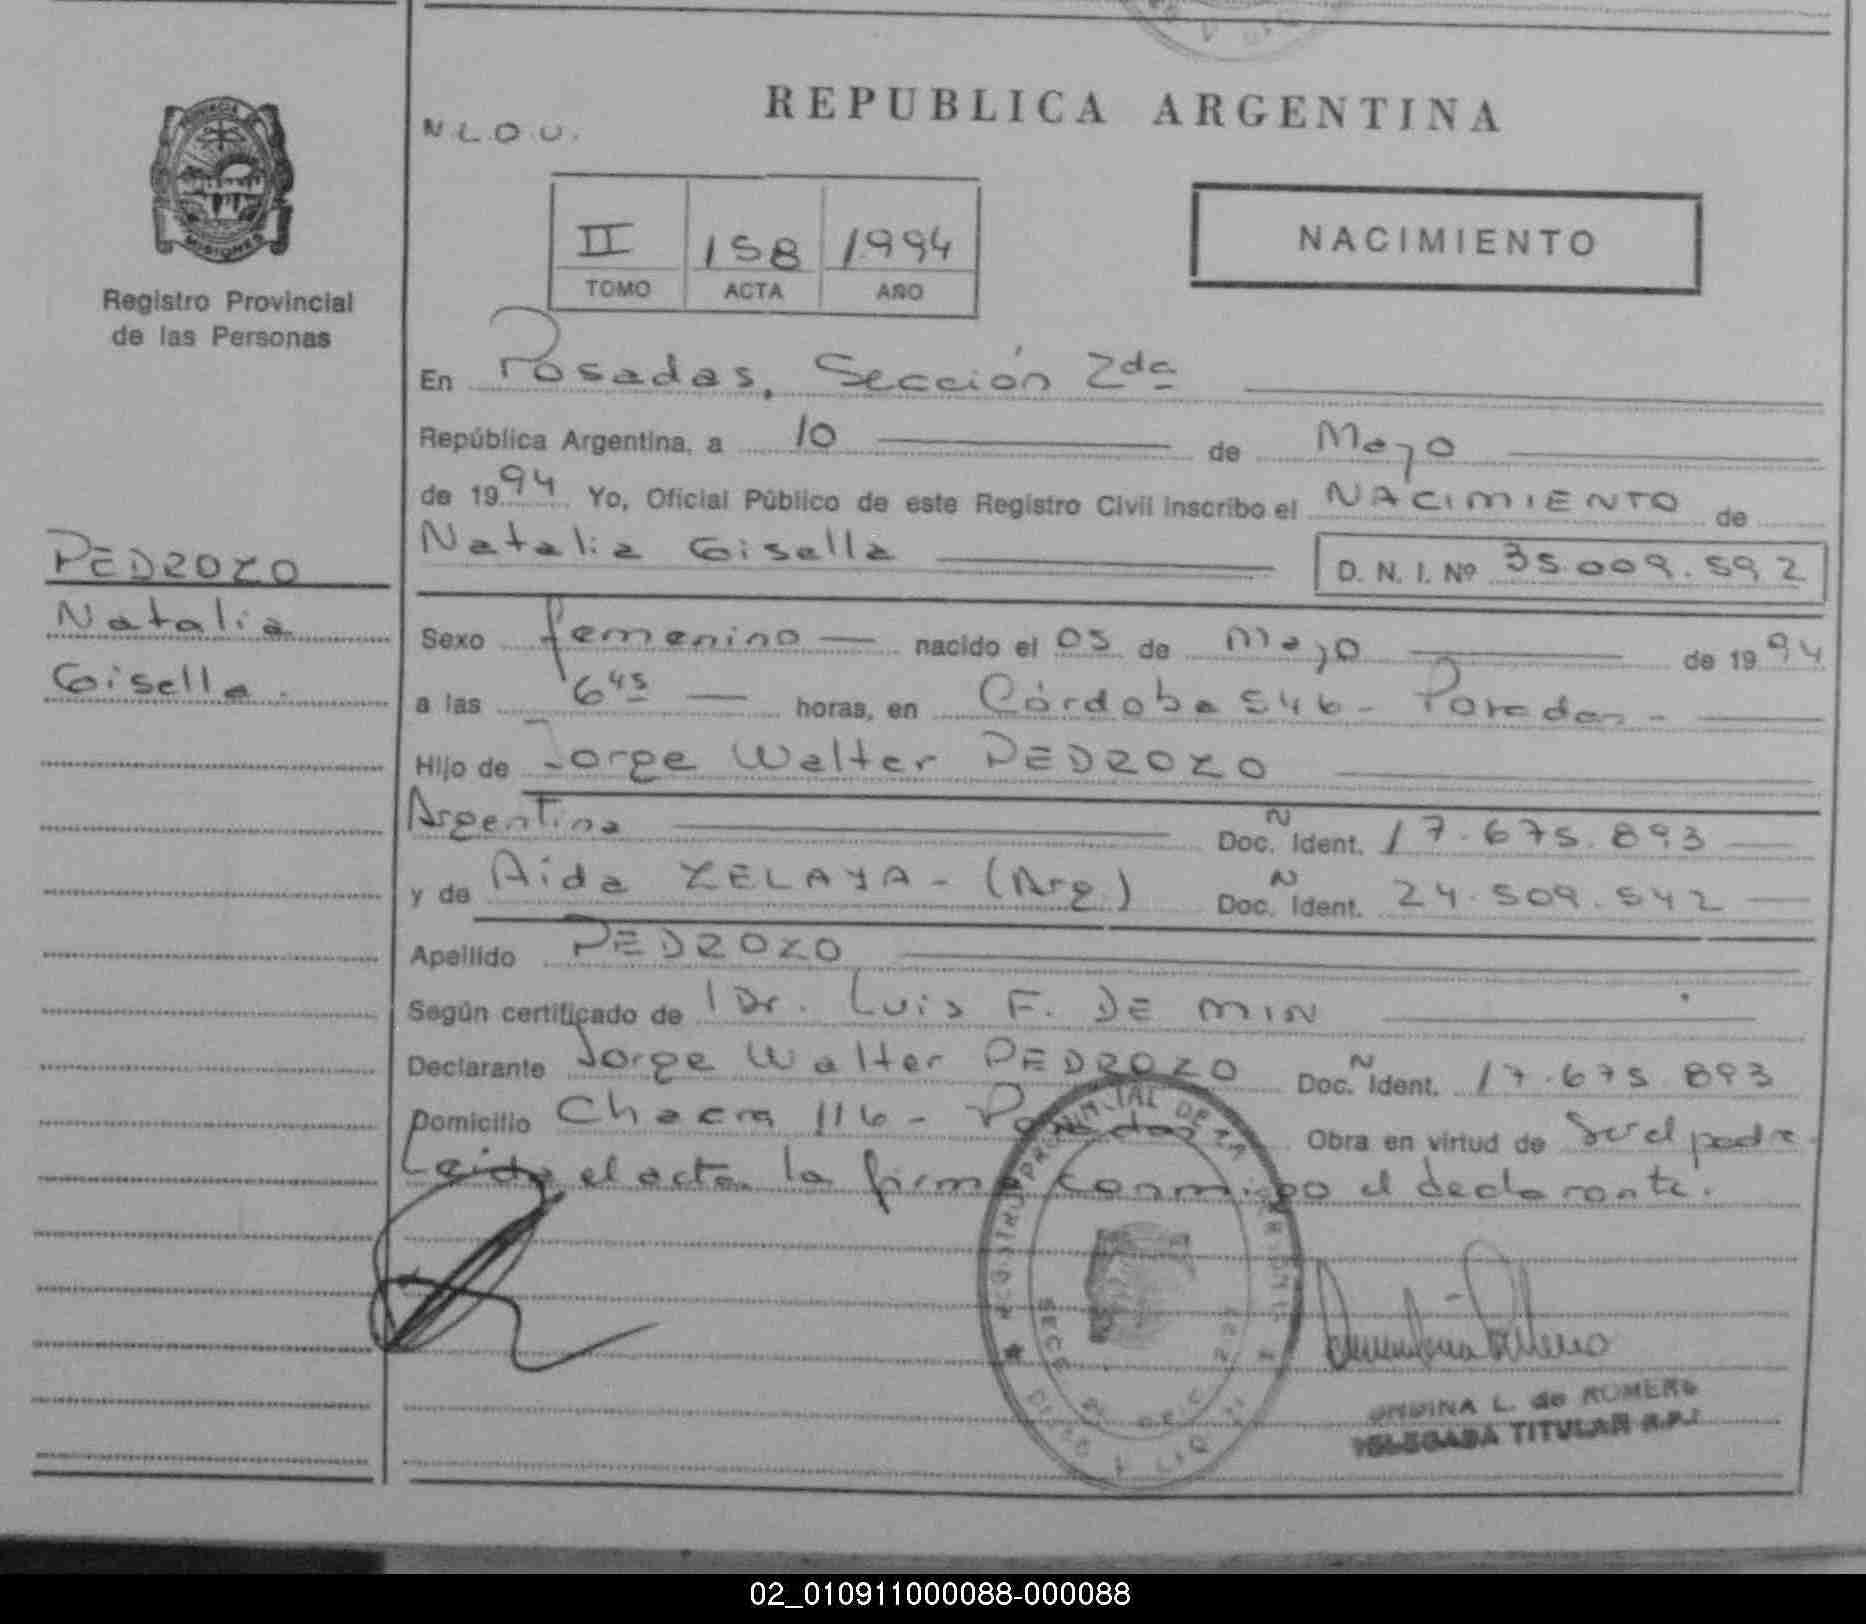 REPUBLICA ARGENTINA
N.L.O.U.
PROVINCIA DE
MISIONES
Registro Provincial
de las Personas
II 158 1994
TOMO ACTA AÑO
NACIMIENTO
En Posadas, Sección 2da
República Argentina, a 10 de Mayo
de 1994 Yo, Oficial Público de este Registro Civil inscribo el NACIMIENTO de
Natalia Gisella D. N. I. Nº 35.009.592
PEDROZO
Natalia
Gisella.
Sexo femenino nacido el 05 de Mayo de 1994
a las 6 45 horas, en Córdoba 546 - Posadas -
Hijo de Jorge Walter PEDROZO
Argentina N Doc. Ident. 17.675.893
y de Aida ZELAYA - (Arg.) N Doc. Ident. 24.509.542
Apellido PEDROZO
Según certificado de Dr. Luis F. DE MIN
Declarante Jorge Walter PEDROZO N Doc. Ident. 17.675.893
Domicilio Chacra 116 - Posadas Obra en virtud de Ser el padre.
Leida el acta la firma conmigo el declarante.
L. de ROMERO
DELEGADA TITULAR R.P.
02_010911000088-000088